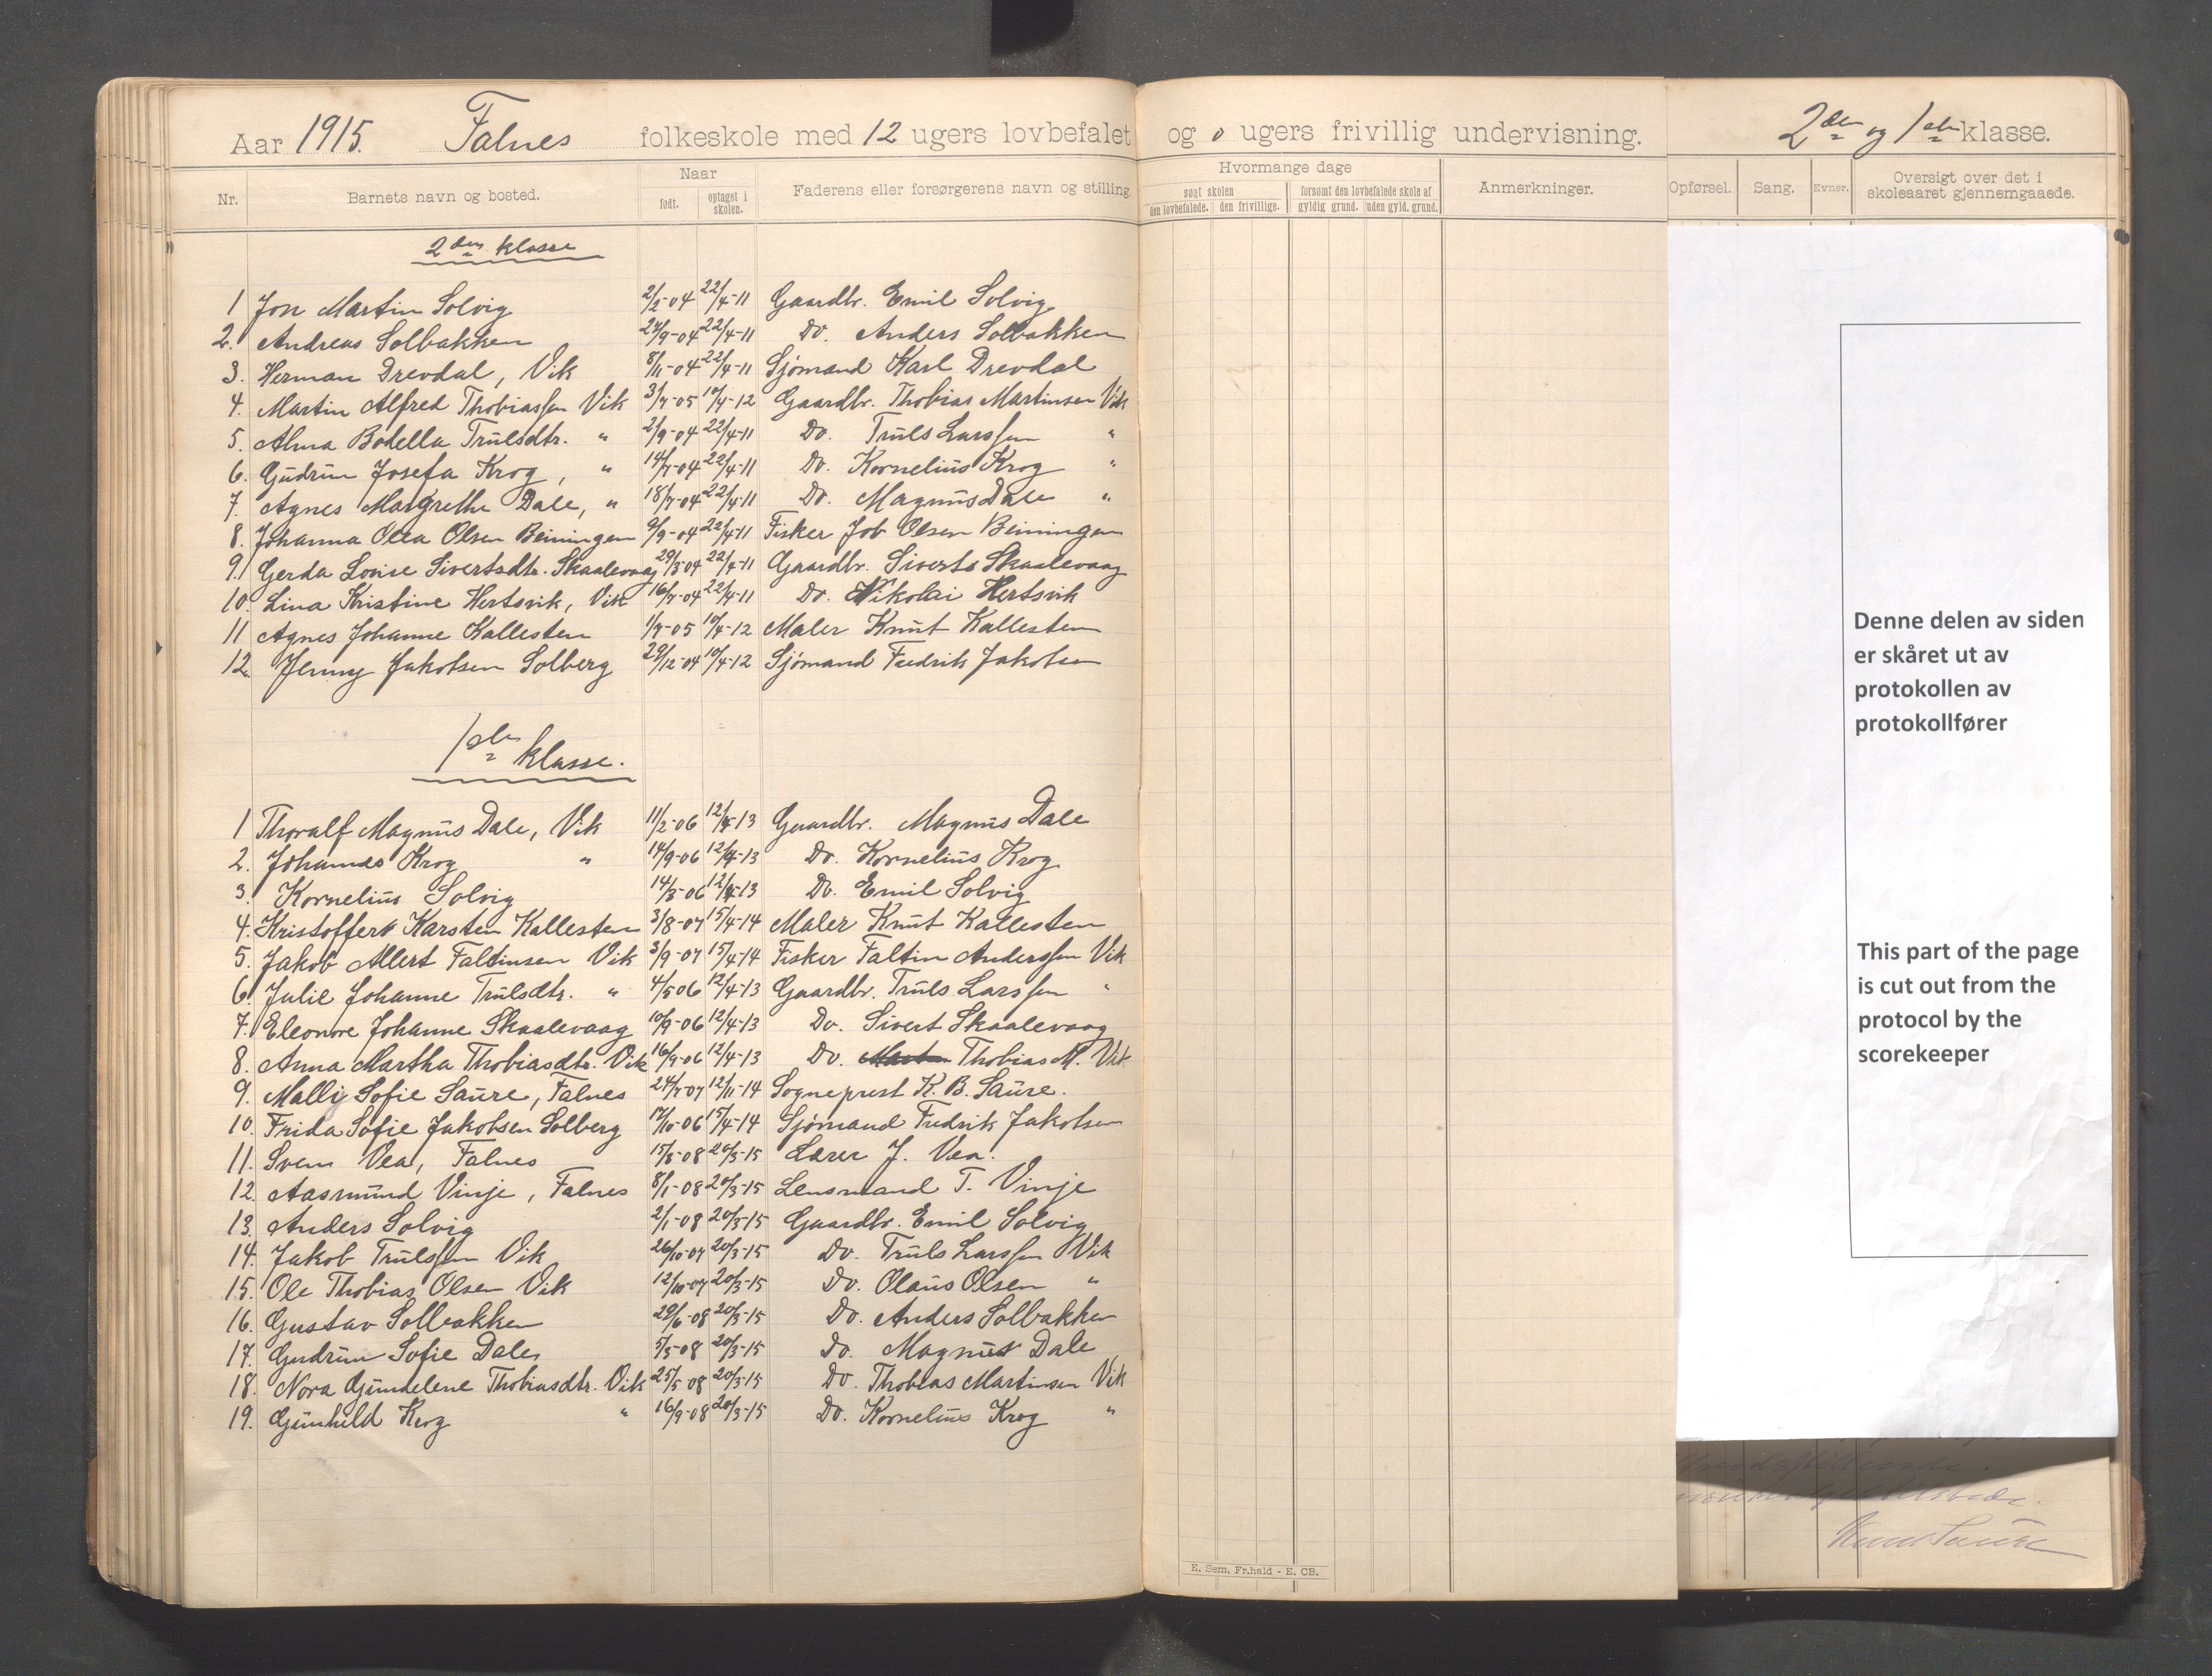 Aar 1915. Falnes folkeskole med 12 ugers lovbefalet og 0 ugers frivillig undervisning. 2den og 1ste klasse.
Nr. Barnets navn og bosted. Naar født. optaget i skolen. Faderens eller forsørgerens navn og stilling. Hvormange dage søgt skolen den lovbefalede. den frivillige. forsømt den lovbefalede skole af gyldig grund. uden gyld. grund. Anmerkninger. Opførsel. Sang. Evner. Oversigt over det i skoleaaret gjennemgaaede.
2den klasse
1 Jon Martin Solvig 2/2-04 22/4-11 Gaardbr. Emil Solvig
2. Andreas Solbakken 27/9-04 22/4-11 Do. Anders Solbakken
3. Herman Drevdal, Vik 8/11-04 22/4-11 Sjømand Karl Drevdal
4. Martin Alfred Thobiassen Vik 3/7-05 10/4-12 Gaardbr. Thobias Martinsen Vik
5. Alma Bodella Trulsdtr. " 2/9-04 22/4-11 Do. Truls Larssen "
6. Gudrun Josefa Krog, " 14/7-04 22/4-11 Do. Kornelius Krog "
7. Agnes Margrethe Dale, " 18/7-04 22/4-11 Do. Magnus Dale "
8. Johanna Olea Olsen Beiningen 9/9-04 22/4-11 Fisker Job Olsen Beiningen
9. Gerda Lovise Sivertsdtr. Skaalevaag 29/3-04 22/4-11 Gaardbr. Siverts Skaalevaag
10. Lina Kristine Hertsvik, Vik 16/7-04 22/4-11 Do. Nikolai Hertsvik
11 Agnes Johanne Kallesten 1/7-05 10/4-12 Maler Knut Kallesten
12. Jenny Jakobsen Solberg 29/12-04 10/4-12 Sjømand Fredrik Jakobsen
1ste klasse.
1 Thoralf Magnus Dale, Vik 11/2-06 12/4-13 Gaardbr. Magnus Dale
2. Johannes Krog " 14/9-06 12/4-13 Do. Kornelius Krog
3. Kornelius Solvig 14/3-06 12/4-13 Do. Emil Solvig
4. Kristoffer Karsten Kallesten 3/8-07 15/4-14 Maler Knut Kallesten
5. Jakob Allert Faltinsen Vik 3/9-07 15/4-14 Fisker Faltin Anderssen Vik
6. Julie Johanne Trulsdtr. " 4/5 06 12/4-13 Gaardbr. Truls Larssen "
7. Eleonore Johanne Skaalevaag 10/9-06 12/4-13 Do. Sivert Skaalevaag
8. Anna Martha Thobiasdtr. Vik 16/9-06 12/4-13 Do. Thobias M. Vik
9. Malli Sofie Saure, Falnes 24/7-07 12/11-14 Sogneprest K. B. Saure.
10. Frida Sofie Jakobsen Solberg 17/10-06 15/4-14 Sjømand Fredrik Jakobsen
11. Sven Vea, Falnes 15/8-08 20/3-15 Lærer J. Vea.
12. Aasmund Vinje, Falnes 8/1-08 20/3-15 Lensmand T. Vinje
13. Anders Solvig 2/1-08 20/3-15 Gaardbr. Emil Solvig
14. Jakob Trulssen Vik 26/10-07 20/3-15 Do. Truls Larssen Vik
15. Ole Thobias Olsen Vik 12/10-07 20/3-15 Do. Olaus Olsen "
16. Gustav Solbakken 29/6-08 20/3-15 Do. Anders Solbakken
17. Gudrun Sofie Dale 5/5-08 20/3-15 Do. Magnus Dale
18. Nora Gundelene Thobiasdtr. Vik 25/5 08 20/3-15 Do. Thobias Martinsen Vik
19. Gunhild Krog " 16/9-08 20/3-15 Do. Kornelius Krog "
E. Sem. Fr.hald - E. CB.
Denne delen av siden
er skåret ut av
protokollen av
protokollfører
This part of the page
is cut out from the
protocol by the
scorekeeper